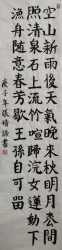 空山新雨後天氣晚來秋明月枩間
照清泉石上流竹喧歸浣女蓮動下
漁舟隨意春芳歇王孫自可留
庚子年張
書